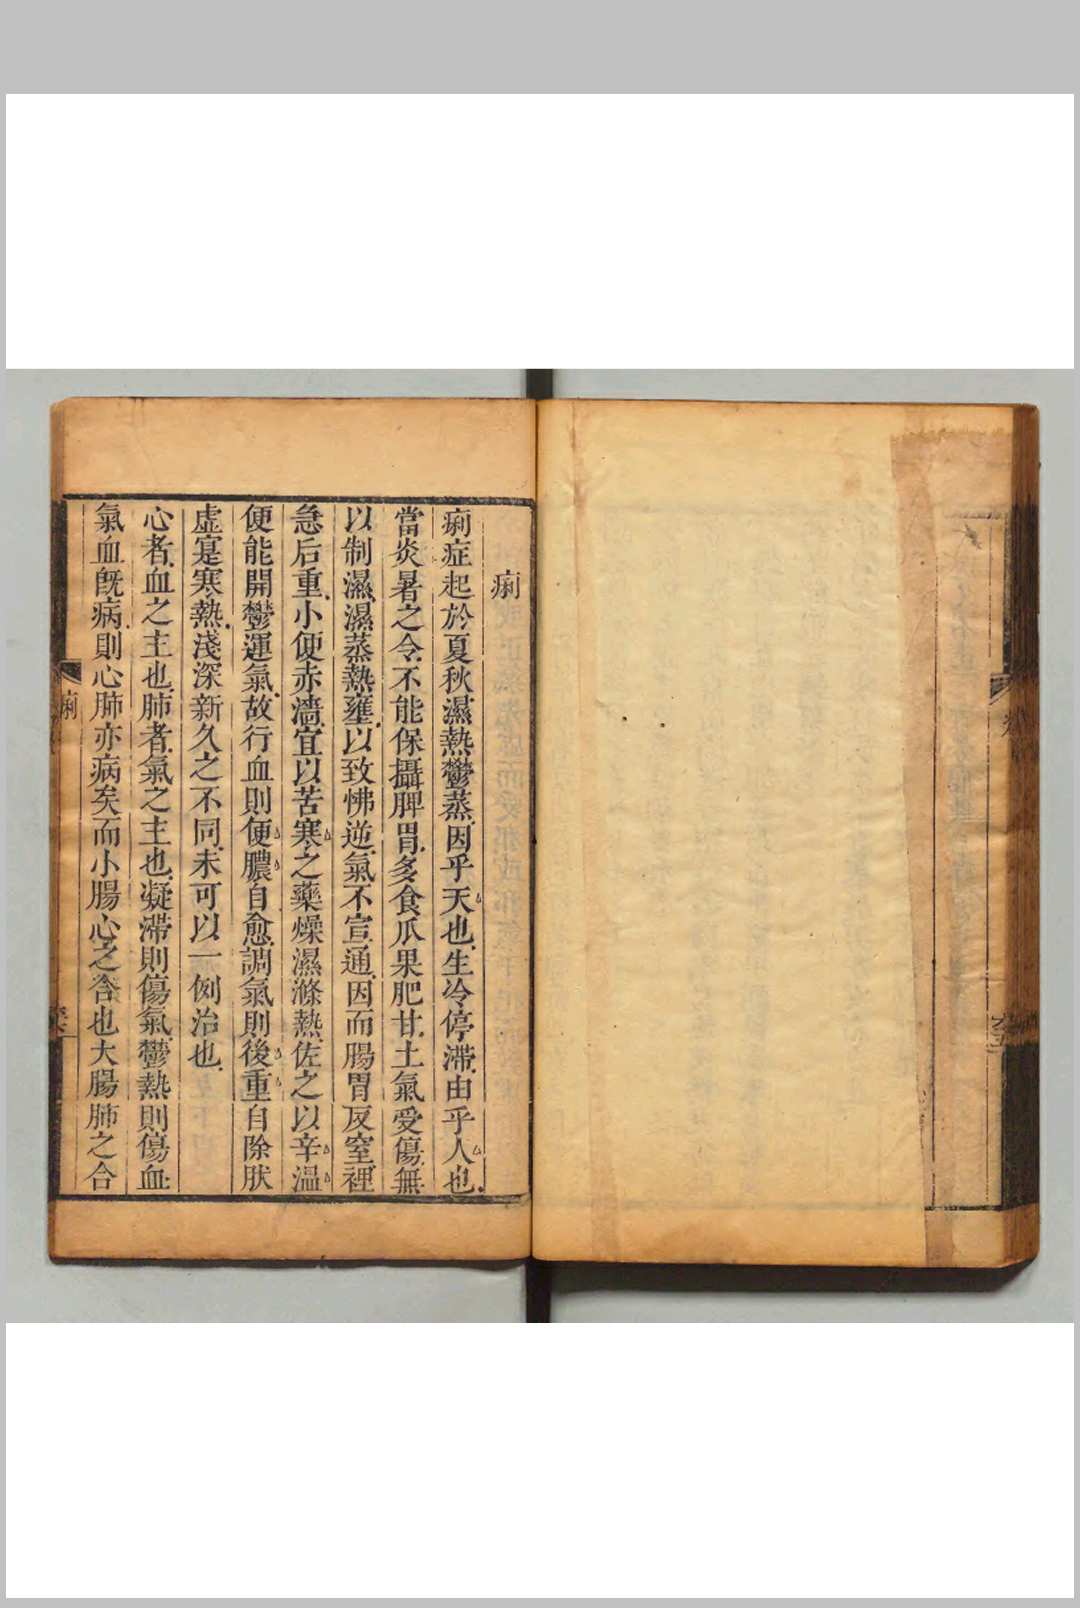 痢
痢症起於夏秋濕熱鬱蒸因乎天也生冷停滯由乎人也
當炎暑之令不能保攝脾胃多食瓜果肥甘土氣受傷無
以制濕濕蒸熱壅以致怫逆氣不宣通因而腸胃反窒裡
急后重小便赤濇宜以苦寒之藥燥濕滌熱佐之以辛溫
便能開鬱運氣故行血則便膿自愈調氣則後重自除肰
虛寔寒熱淺深新久之不同未可以一例治也
心者血之主也肺者氣之主也凝滯則傷氣鬱熱則傷血
氣血旣病則心肺亦病矣而小腸心之合也大腸肺之合
痢